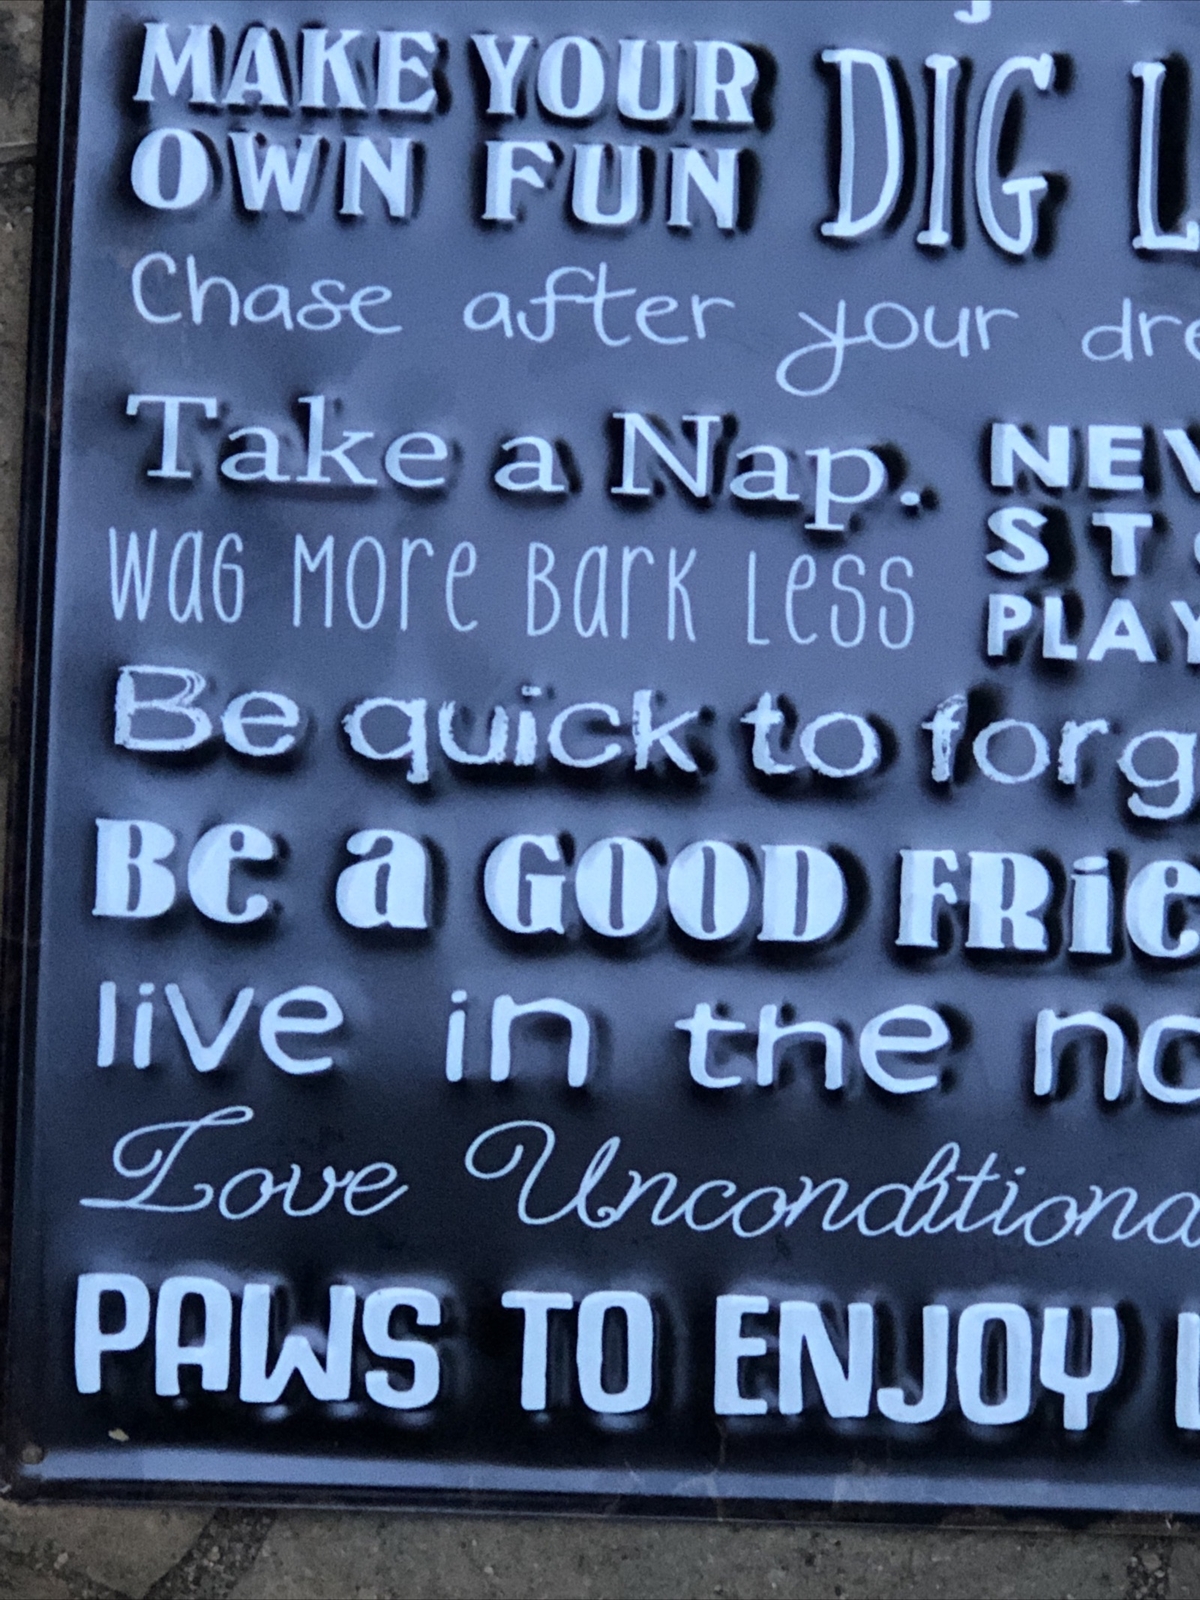 MAKE YOUR
OWN FUN
DIG L
Chase after your dre
Take a Nap.
NEV
ST
PLAY
WaG MOre BarK Less
Be quick to forg
Be a GOOD FRie
live in the no
Love Unconditiona
PAWS TO ENJOY L